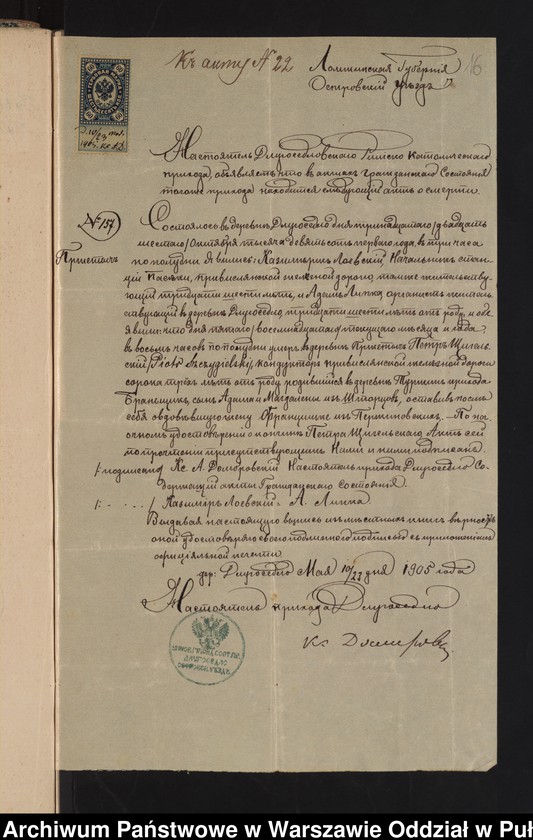 Къ акту N 22
Ломжинская Губернія 16
Островскій уѣздъ
Настоятель Длугоседловскаго Римско Католическаго
прихода, объявляетъ что въ актахъ Гражданскаго Состоянія
тогоже прихода находится слѣдующій актъ о смерти.
N 157.
Пржетычь
Состоялось въ деревнѣ Длугоседло дня тринадцатаго /двадцать
шестаго/ Октября тысяча девятьсотъ перваго года, въ три часа
по полудни. Явились: Казимиръ Лоевскій, Начальникъ стан-
ціи Пасѣки, привислянской желѣзной дороги, тамже жительству-
ющій тридцати шести лѣтъ, и Адамъ Липка, органистъ житель-
ствующій въ деревнѣ Длугоседло, тридцати шести лѣтъ отъ роду, и объ-
явили: что дня пятаго /восемнадцатаго/ текущаго мѣсяца и года,
въ восемь часовъ по полудни умеръ въ деревнѣ Пржетычь Петръ Щигель-
скій /Piotr Szczygielski/, кондукторъ привислянской желѣзной дороги
сорока трехъ лѣтъ отъ роду, родившійся въ деревнѣ прихода
Бранщикъ, сынъ Адама и Магдалены изъ оставивъ послѣ
себя овдовѣвшую жену Францишку изъ По на-
очномъ удостовѣреніи о кончинѣ Петра Щигельскаго, Актъ сей
по прочтеніи присутствующимъ Нами и ними подписанъ.
/: подписано/ Кс. А. Настоятель прихода Длугоседло Со-
держащій акты Гражданскаго Состоянія.
/: - . . . . / Казимиръ Лоевскій - А. Липка
Выдавая настоящую выпись изъ мѣстныхъ книгъ вѣрность
оной удостовѣряю своеподписомъ съ приложеніемъ
официальной печати.
дер: Длугоседло Мая 10/23 дня 1905 года
Настоятель прихода Длугоседло
Кс
Archiwum Państwowe w Warszawie Oddział w Puł